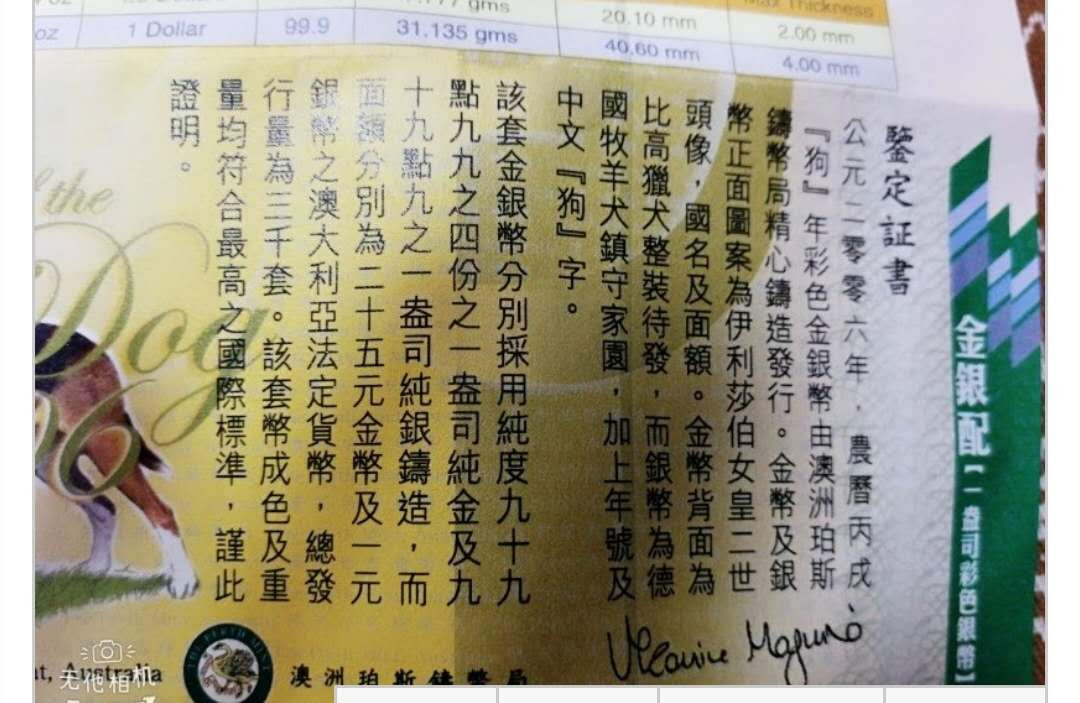 oz
1 Dollar
99.9
31.135 gms
20.10 mm
40.60 mm
Max Thickness
2.00 mm
4.00 mm
金銀配【一盎司彩色銀幣】
鑒定証書
公元二零零六年，農曆丙戌
『狗』年彩色金銀幣由澳洲珀斯
鑄幣局精心鑄造發行。金幣及銀
幣正面圖案為伊利莎伯女皇二世
頭像，國名及面額。金幣背面為
比高獵犬整裝待發，而銀幣為德
國牧羊犬鎮守家園，加上年號及
中文『狗』字。
該套金銀幣分別採用純度九十九
點九九之四份之一盎司純金及九
十九點九之一盎司純銀鑄造，而
面額分別為二十五元金幣及一元
銀幣之澳大利亞法定貨幣，總發
行量為三千套。該套幣成色及重
量均符合最高之國際標準，謹此
證明。
the
Dog
THE PERTH MINT
澳洲珀斯鑄幣局
nt, Australia
无他相机